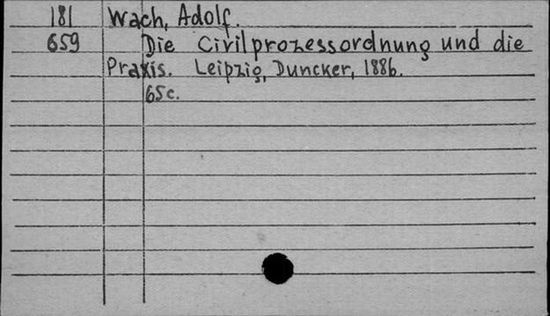 181 Wach, Adolf.
659 Die Civilprozessordnung und die
Praxis. Leipzig, Duncker, 1886.
65c.